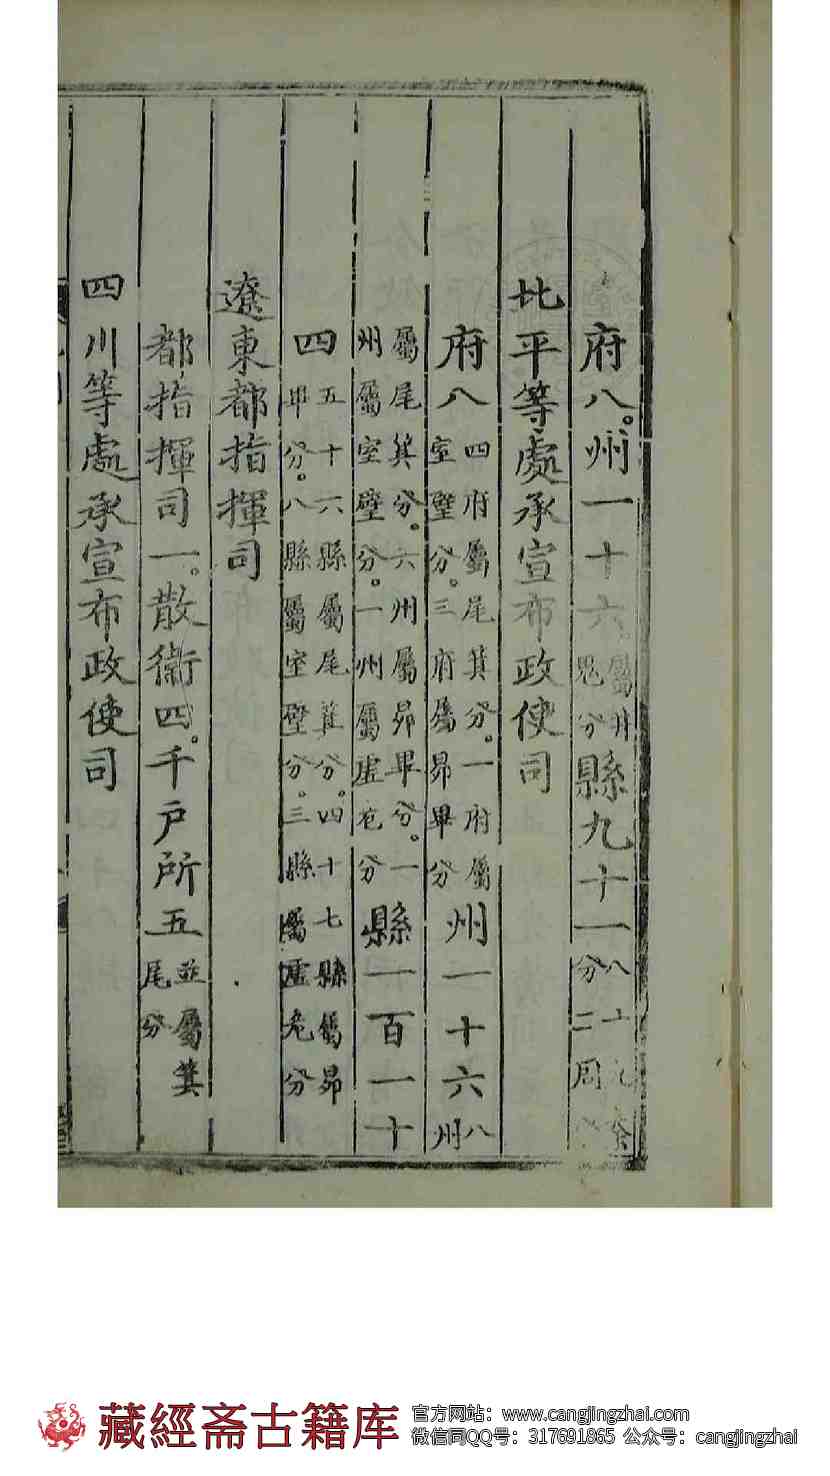 府八。州一十六。屬井鬼分縣九十一八十分二周
北平等處承宣布政使司
府八四府屬尾箕分。一府屬室壁分。三府屬昴畢分州一十六八州
屬尾箕分。六州屬昴畢分。一州屬室壁分。一州屬虛危分縣一百一十
四五十六縣屬尾箕分。四十七縣屬昴畢分。八縣屬室壁分。三縣屬虛危分
遼東都指揮司
都指揮司一。散衛四。千戶所五並屬箕尾分
四川等處承宣布政使司
藏經斋古籍库
官方网站：www.cangjingzhai.com
微信同QQ号：317691865 公众号：cangjingzhai